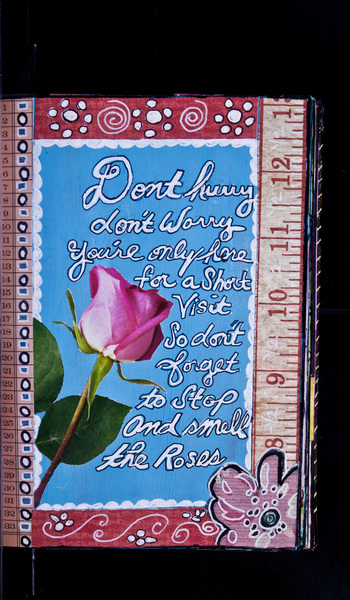 Dont hurry
don't Worry
You're only here
for a Short
Visit
So don't
forget
to Stop
and smell
the Roses
1
2
3
4
5
6
7
8
9
10
11
12
13
14
15
16
17
18
19
20
21
22
23
24
25
26
27
28
29
30
31
32
33
12
11
10
9
8